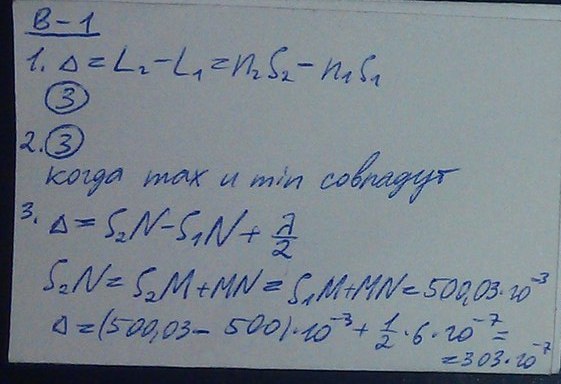 В-1
1. Δ = L₂ - L₁ = n₂S₂ - n₁S₁
③
2. ③
когда max и min совпадут
3. Δ = S₂N - S₁N + λ/2
S₂N = S₂M + MN = S₁M + MN = 500,03·10⁻³
Δ = (500,03 - 500)·10⁻³ + 1/2·6·10⁻⁷ =
= 303·10⁻⁷